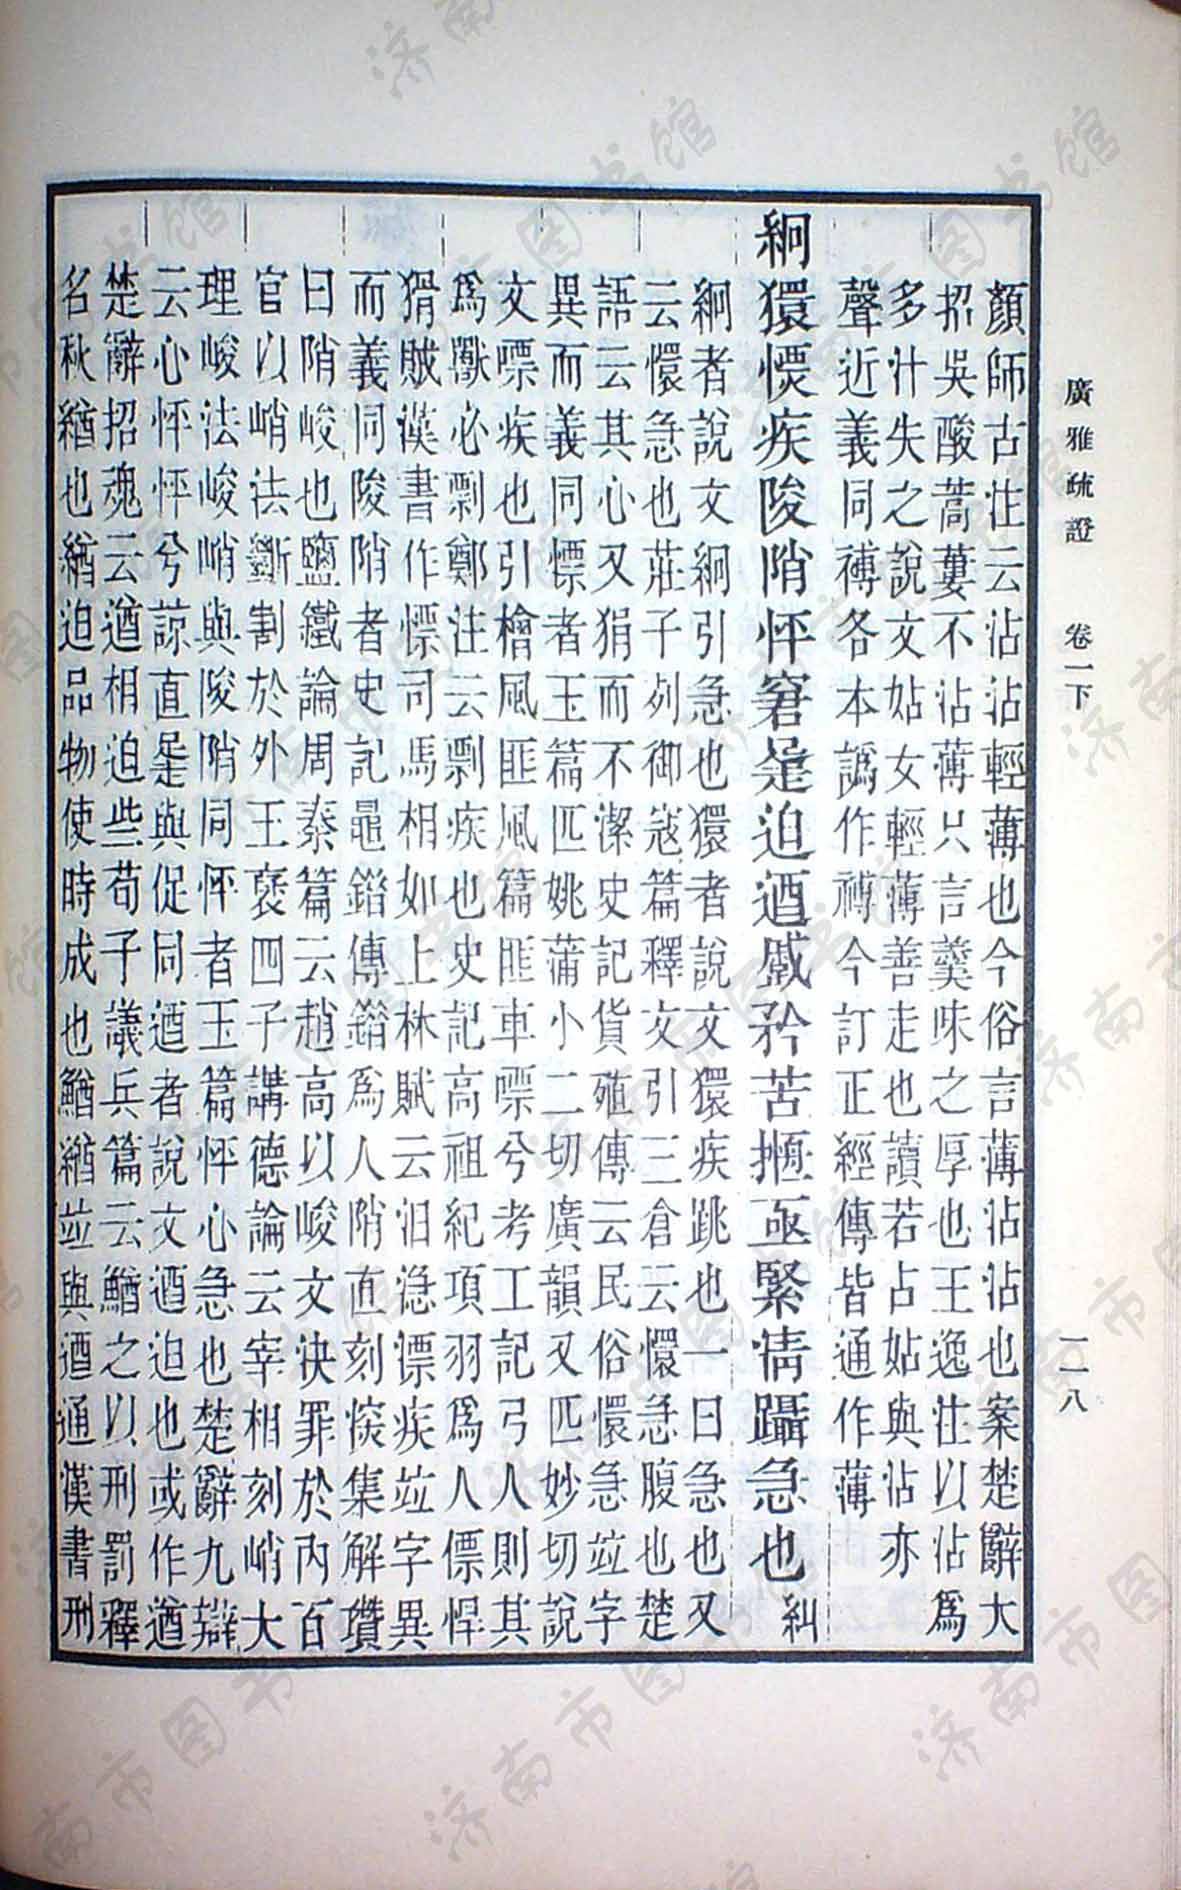 廣雅疏證　卷一下　一一八
顏師古注云沾沾輕薄也今俗言薄沾沾也案楚辭大
招吳酸蒿蔞不沾薄只言羹味之厚也王逸注以沾爲
多汁失之說文姑女輕薄善走也讀若占姑與沾亦
聲近義同禣各本譌作禣今訂正經傳皆通作薄
絅獧慓疾陖陗怦窘是迫逎戚矜苦㮓亟緊凊躡急也
絅者說文絅引急也獧者說文獧疾跳也一曰急也又
云懁急也莊子列御寇篇釋文引三倉云懁急腹也楚
語云其心又狷而不潔史記貨殖傳云民俗懁急竝字
異而義同慓者玉篇匹姚蒲小二切廣韻又匹妙切說
文嘌疾也引檜風匪風篇匪車嘌兮考工記弓人則其
爲獸必剽鄭注云剽疾也史記高祖紀項羽爲人僄悍
猾賊漢書作慓司馬相如上林賦云汨急漂疾竝字異
而義同陖陗者史記鼂錯傳錯爲人陗直刻深集解瓚
曰陗峻也鹽鐵論周秦篇云趙高以峻文決罪於內百
官以峭法斷割於外王褒四子講德論云宰相刻峭大
理峻法峻峭與陖陗同怦者玉篇怦心急也楚辭九辯
云心怦怦兮諒直是與促同逎者說文逎迫也或作遒
楚辭招魂云遒相迫些荀子議兵篇云鰌之以刑罰釋
名秋緧也緧迫品物使時成也鰌緧竝與遒通漢書刑